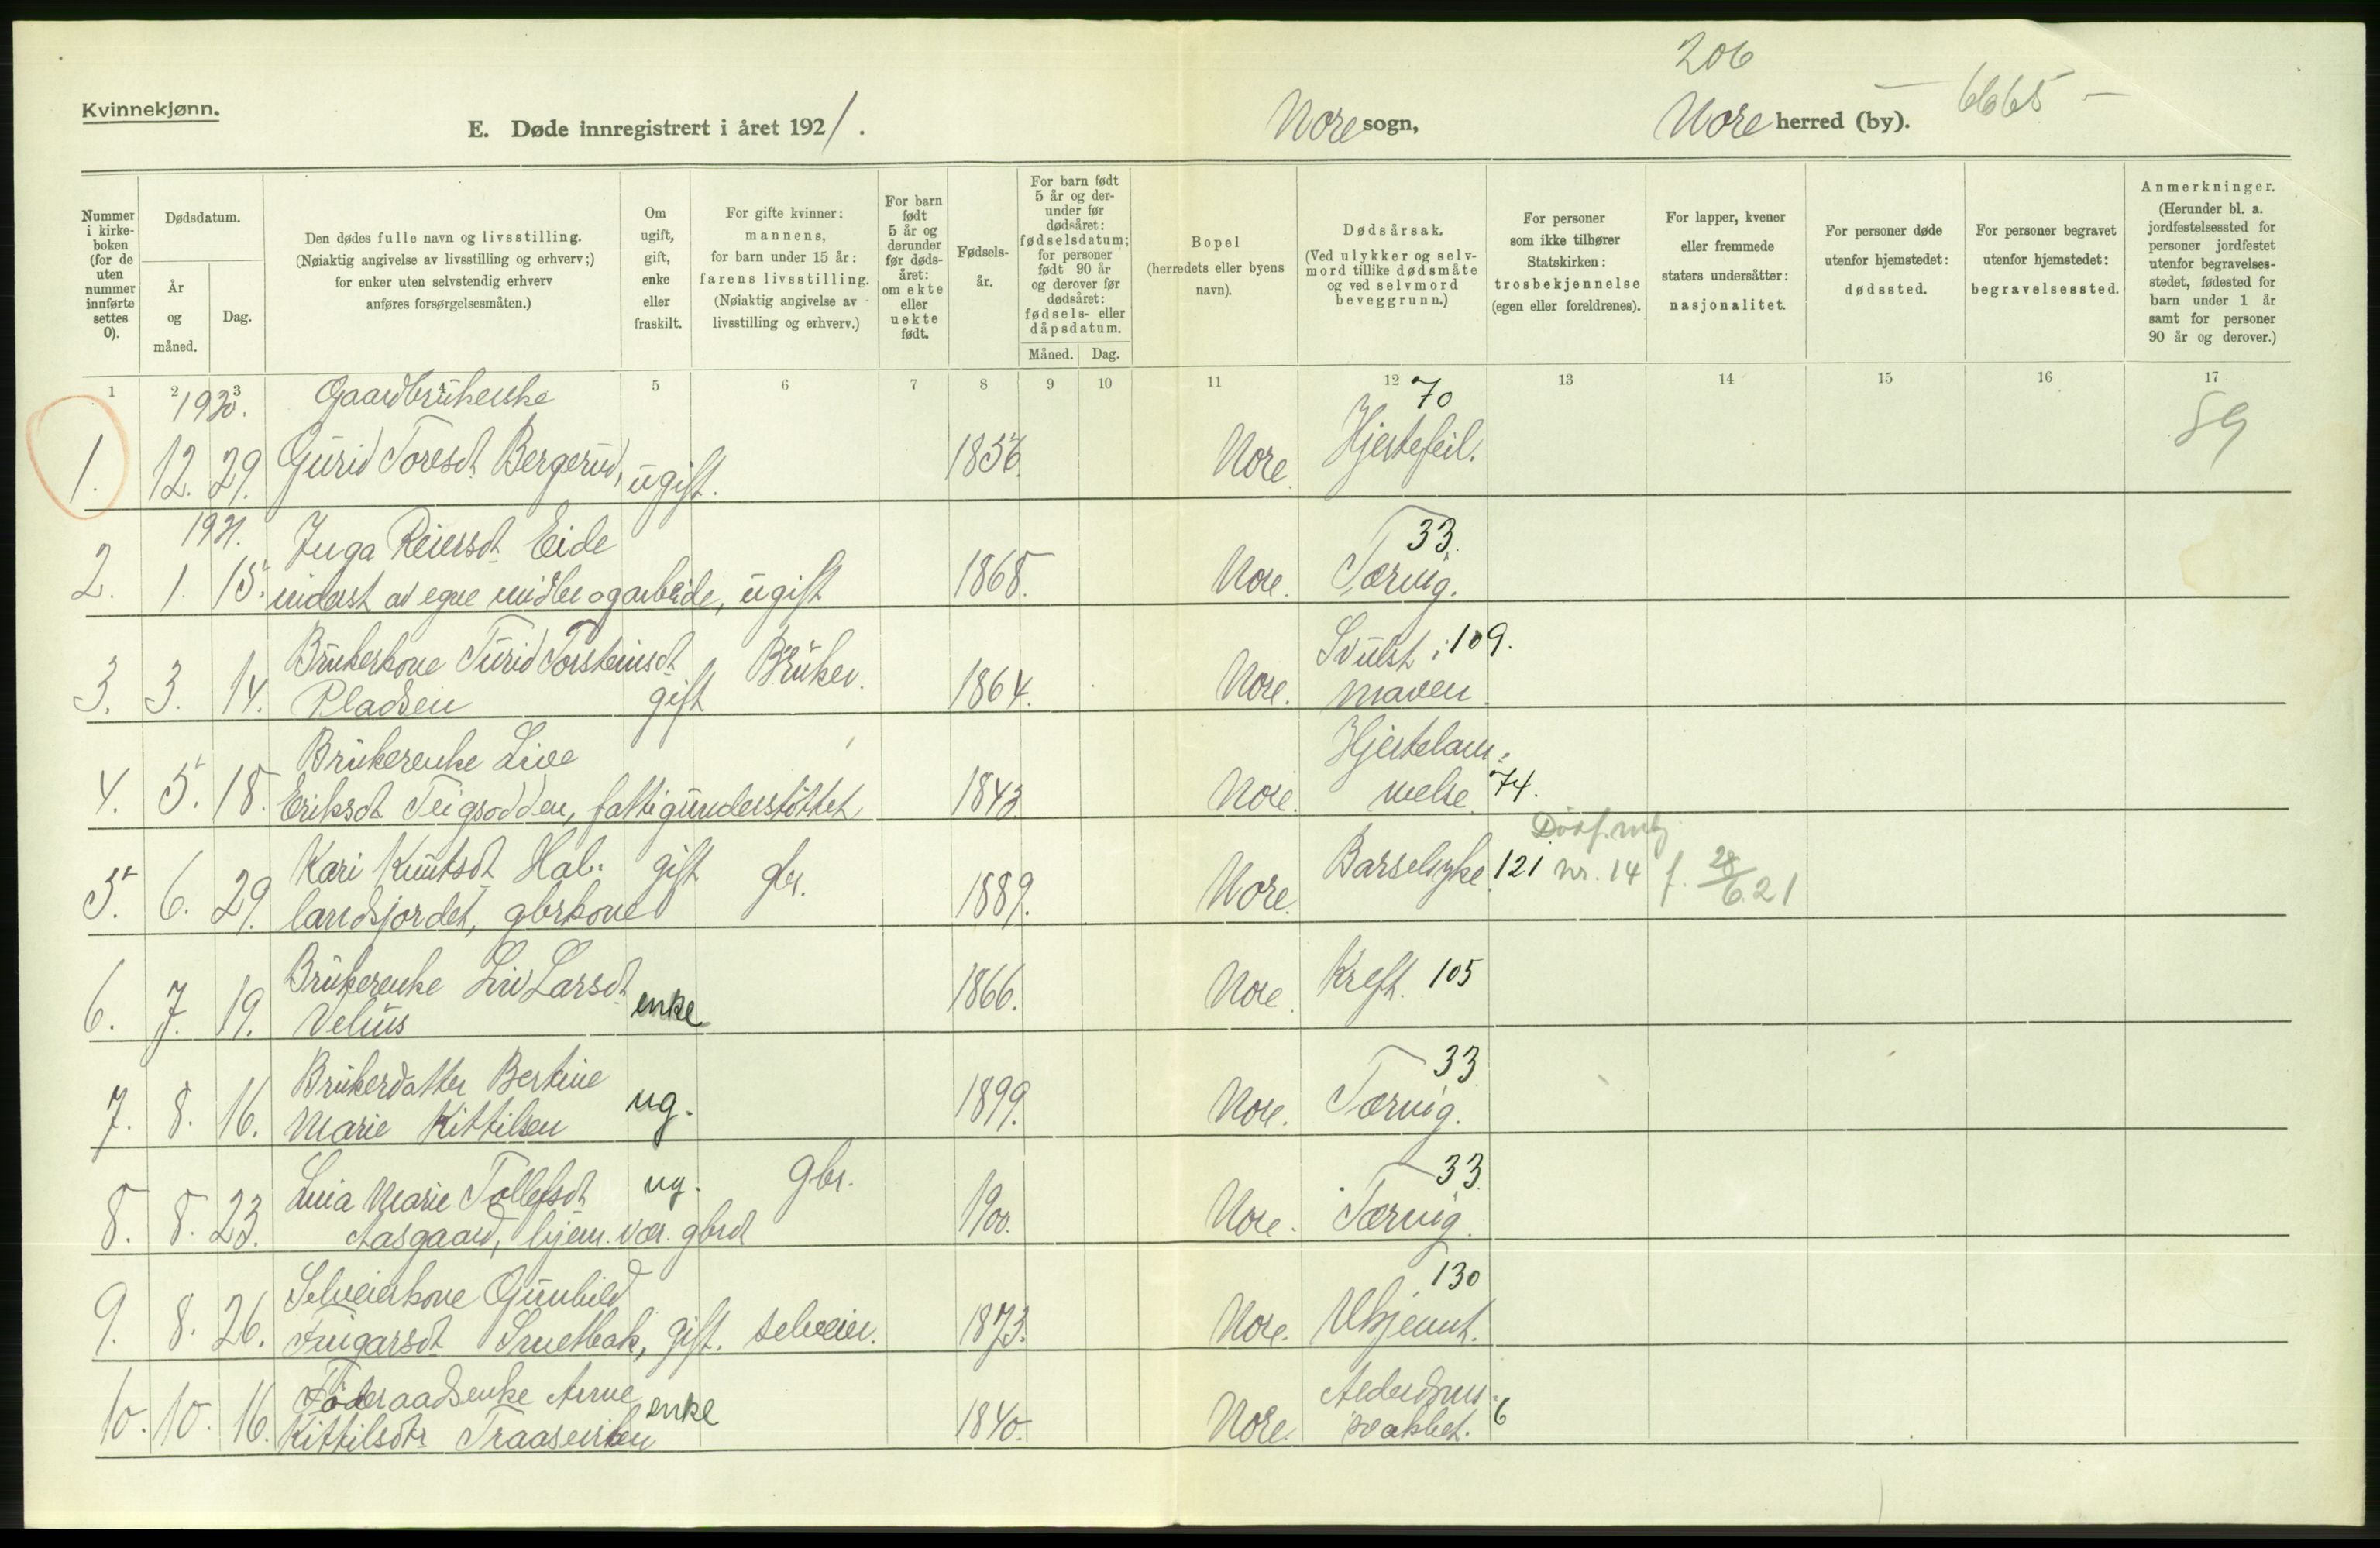 206
Kvinnekjønn.
E. Døde innregistrert i året 1921.
Nore sogn,
Nore herred (by).
6665 -
Nummer i kirke-boken (for de uten nummer innførte settes 0).
Dødsdatum.
År og måned.
Dag.
Den dødes fulle navn og livsstilling.
(Nøiaktig angivelse av livsstilling og erhverv;)
for enker uten selvstendig erhverv
anføres forsørgelsesmåten.)
Om ugift, gift, enke eller fraskilt.
For gifte kvinner: mannens, for barn under 15 år: farens livsstilling. (Nøiaktig angivelse av livsstilling og erhverv.)
For barn født 5 år og derunder før døds-året: om ekte eller uekte født.
Fødsels-år.
For barn født 5 år og der-under før dødsåret: fødselsdatum; for personer født 90 år og derover før dødsåret: fødsels- eller dåpsdatum.
Måned.
Dag.
Bopel (herredets eller byens navn).
Dødsårsak. (Ved ulykker og selv-mord tillike dødsmåte og ved selvmord beveggrunn.)
For personer som ikke tilhører Statskirken: trosbekjennelse (egen eller foreldrenes).
For lapper, kvener eller fremmede staters undersåtter: nasjonalitet.
For personer døde utenfor hjemstedet: dødssted.
For personer begravet utenfor hjemstedet: begravelsessted.
Anmerkninger. (Herunder bl. a. jordfestelsessted for personer jordfestet utenfor begravelses-stedet, fødested for barn under 1 år samt for personer 90 år og derover.)
1 2 3 4 5 6 7 8 9 10 11 12 13 14 15 16 17
1920. Gaardbrukerske 70
1. 12. 29. Gurid Toresdt. Bergerud, ugift. 1856. Nore. Hjertefeil. 59
1921. Inga Reiersdt Eide 33.
2. 1. 15. inderst av egne midler og arbeide, ugift 1868. Nore. Tæring.
Brukerkone Turid Torsteinsdt Bruker. Svulst i 109.
3. 3. 14. Pladsen gift 1864. Nore. maven.
Brukerenke Live Hjertelam-
4. 5. 18. Eriksdt Teigsodden, fattigunderstøttet 1843 Nore. melse. 74.
Kari Knutsdt Hal- gift gbr. Barselsyke 121 nr. 14 f. 28/6 21
5. 6. 29. landsjordet, gbrkone 1889. Nore.
Brukerenke Liv Larsdt Kreft. 105
6. 7. 19. Velius enke 1866. Nore.
Brukerdatter Bertine 33
7. 8. 16. Marie Kittilsen ug. 1899. Nore. Tæring.
Marie Tollefsdt ug. gbr. 33.
8. 8. 23. Aasgaard, hjem. vær. gbrdt 1900. Nore. Tæring.
Selveierkone Gunhild 130
9. 8. 26. gift. selveier. 1873. Nore. Ukjennt.
Föderaadsenke Anne enke Alderdoms-
10. 10. 16. Kittilsdtr 1840. Nore. svakhet. 6